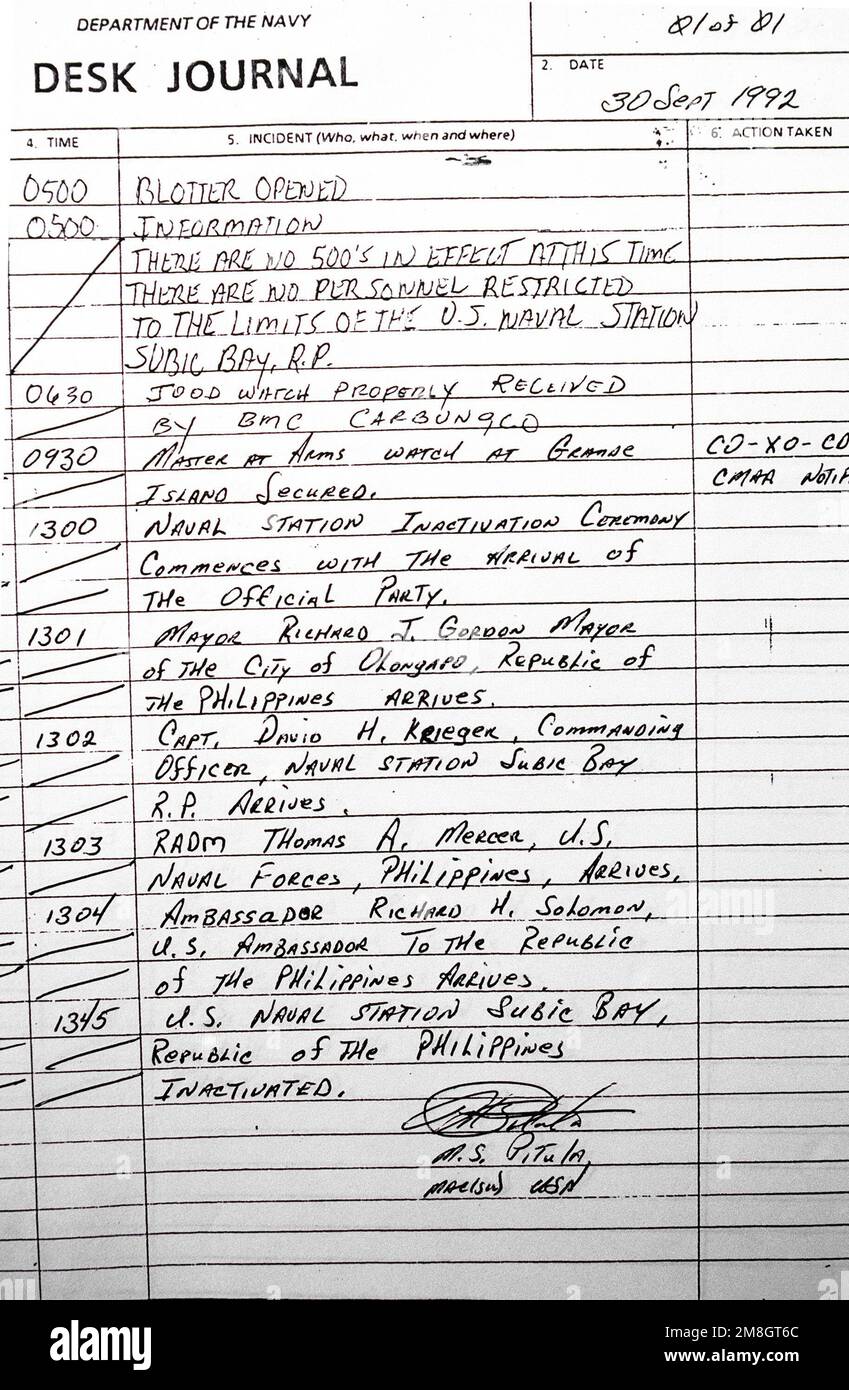 DEPARTMENT OF THE NAVY
DESK JOURNAL
01 of 01
2. DATE
30 Sept 1992
4. TIME
5. INCIDENT (Who, what, when and where)
6. ACTION TAKEN
0500 BLOTTER OPENED
0500 INFORMATION
THERE ARE NO 500'S IN EFFECT AT THIS TIME
THERE ARE NO PERSONNEL RESTRICTED
TO THE LIMITS OF THE U.S. NAVAL STATION
SUBIC BAY, R.P.
0630 JOOD WATCH PROPERLY RECEIVED
BY BMC
0930 MASTER AT ARMS WATCH AT GRANDE CO-XO-CD
ISLAND SECURED. CMAA NOTIF
1300 NAVAL STATION INACTIVATION CEREMONY
COMMENCES WITH THE ARRIVAL of
THE OFFICIAL PARTY.
1301 MAYOR RICHARD J. GORDON MAYOR
of THE CITY of OLONGAPO, REPUBLIC of
THE PHILIPPINES ARRIVES.
1302 CAPT. DAVID H. KRIEGER, COMMANDING
OFFICER, NAVAL STATION SUBIC BAY
R.P. ARRIVES.
1303 RADM THOMAS A. MERCER, U.S.
NAVAL FORCES, PHILIPPINES, ARRIVES.
1304 AMBASSADOR RICHARD H. SOLOMON,
U.S. AMBASSADOR TO THE REPUBLIC
of THE PHILIPPINES ARRIVES.
1345 U.S. NAVAL STATION SUBIC BAY,
REPUBLIC of THE PHILIPPINES
INACTIVATED.
M.S. PITULA,
MAC(SW) USN
alamy
Image ID: 2M8GT6C
www.alamy.com